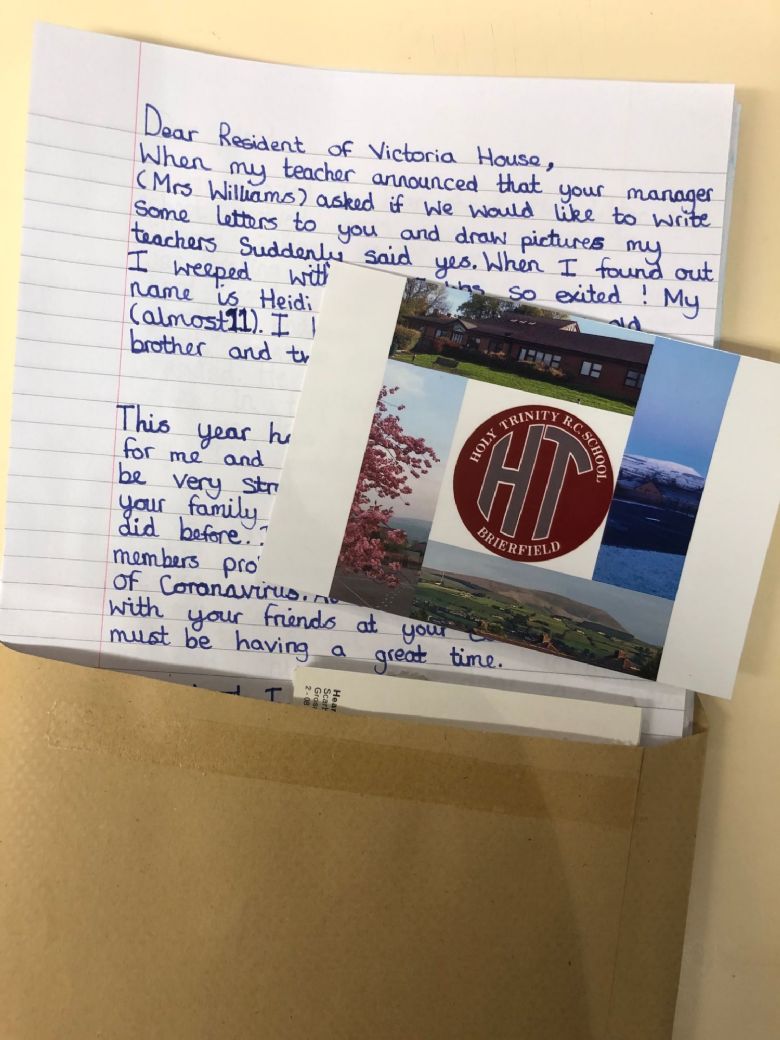 Dear Resident of Victoria House,
When my teacher announced that your manager
(Mrs Williams) asked if we would like to write
some letters to you and draw pictures my
teachers Suddenly said yes. When I found out
I weeped with so exited ! My
name is Heidi
(almost 11). I
brother and
This year
for me and
be very
your family
did before.
members
of Coronavirus.
with your friends at your
must be having a great time.
I
HOLY TRINITY R.C. SCHOOL
HT
BRIERFIELD